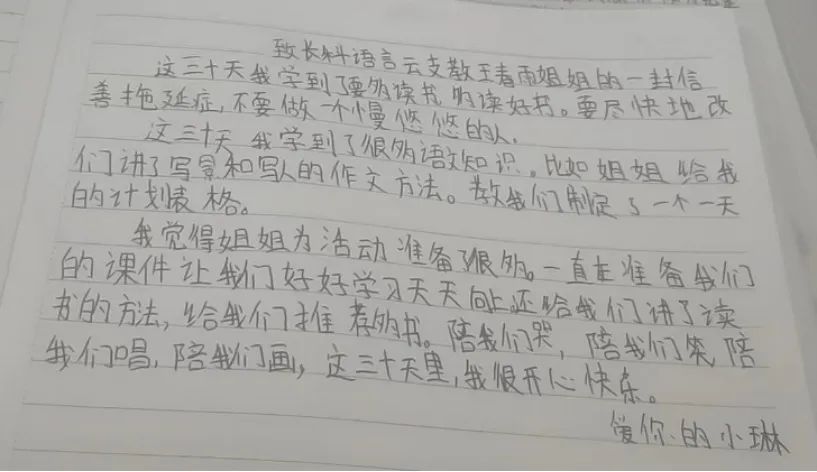 致长科语言云支教王春雨姐姐的一封信
这三十天我学到了要多读书多读好书。要尽快地改
善拖延症,不要做一个慢悠悠的人。
这三十天我学到了很多语文知识。比如姐姐给我
们讲了写景和写人的作文方法。教我们制定了一个一天
的计划表格。
我觉得姐姐为活动准备了很多。一直在准备我们
的课件让我们好好学习天天向上还给我们讲了读
书的方法,给我们推荐多书。陪我们哭,陪我们笑,陪
我们唱,陪我们画,这三十天里,我很开心快乐。
爱你的小琳